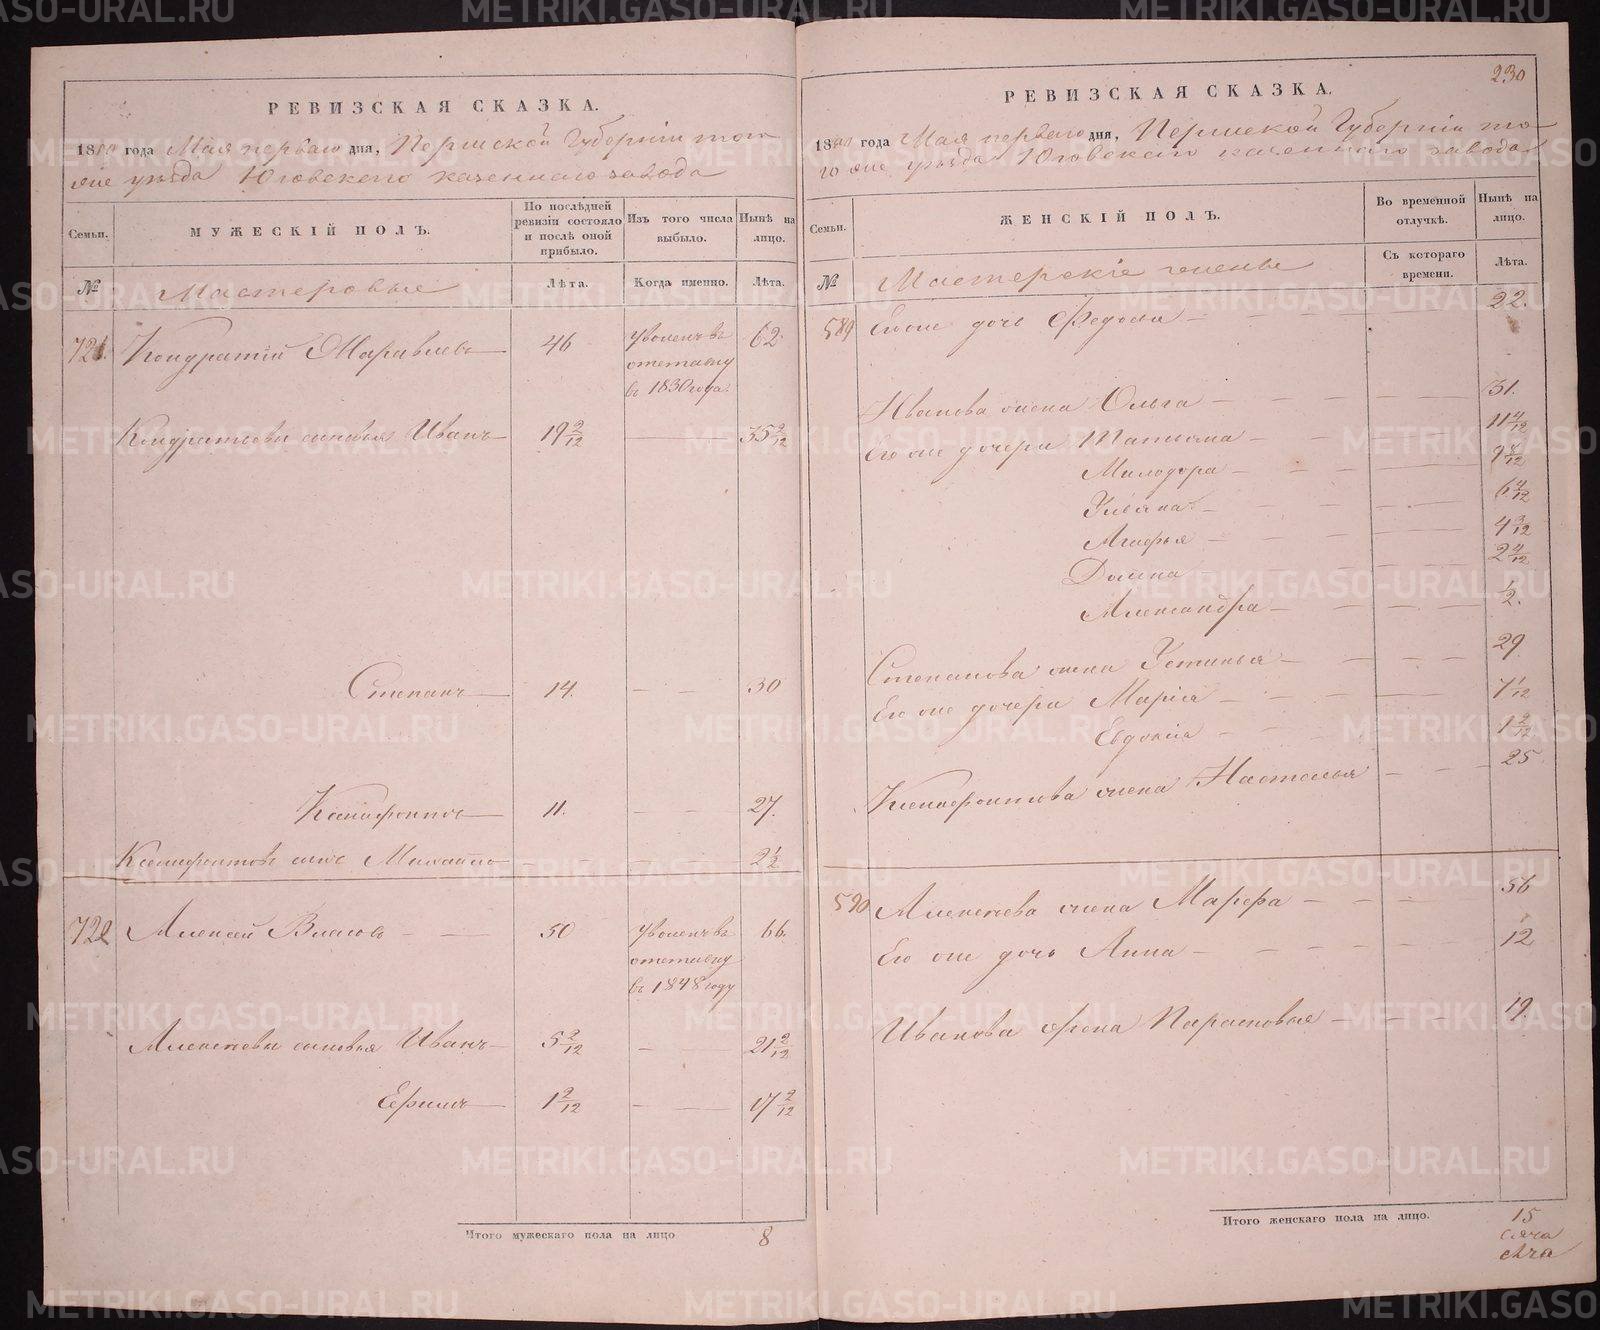 РЕВИЗСКАЯ СКАЗКА.
1850 года Мая перваго дня, Пермской Губерніи того
же уезда Юговскаго казеннаго завода
Семьи.
МУЖЕСКІЙ ПОЛЪ.
По послѣдней ревизіи состояло и послѣ оной прибыло.
Изъ того числа выбыло.
Нынѣ на лицо.
№
Мастеровые
Лѣта.
Когда именно.
Лѣта.
721. Кондратій 46 уволенъ въ отставку въ 1830 года. 62.
Кондратьевы сыновья Иванъ 19 2/12 — — 35 2/12
Степанъ 14. — — 30
Ксенофонтъ 11. — — 27.
Ксенофонтовъ сынъ Михайло — — — 2 1/2
722 Алексей Власовъ — — 50 уволенъ въ отставку въ 1848 году 66.
Алексеевы сыновья Иванъ 5 2/12 — — 21 2/12
Ефимъ 1 2/12 — — 17 2/12
Итого мужескаго пола на лицо 8
230
РЕВИЗСКАЯ СКАЗКА.
1850 года Мая перваго дня, Пермской Губерніи то-
го же уѣзда Юговскаго казеннаго завода
Семьи.
ЖЕНСКІЙ ПОЛЪ.
Во временной отлучкѣ.
Нынѣ на лицо.
№
Мастерскіе женье
Съ котораго времени.
Лѣта.
589 Его же дочь Федосья 22.
Иванова жена Ольга 31.
Его же дочери Татьяна 11 4/12
Милодора 9 4/12
Ульяна 6 4/12
Агафья 4 3/12
Домна 2 4/12
Александра 1/2.
Степанова жена Устинья 29
Его же дочери Марія 7 1/12
Евдокія 1 2/12
Ксенофонтова жена Настасья 25
590 Алексеева жена Марфа 56
Его же дочь Анна 12
Иванова жена Парасковья 19.
Итого женскаго пола на лицо. 15
METRIKI.GASO-URAL.RU